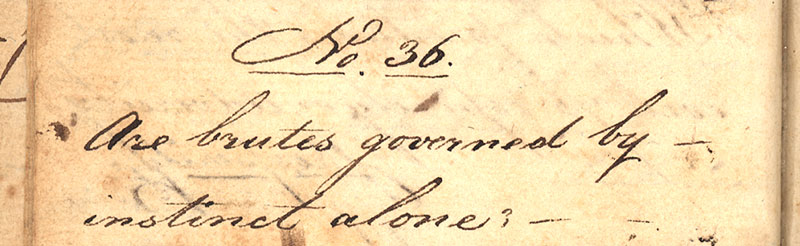 No. 36.
Are brutes governed by –
instinct alone? – –